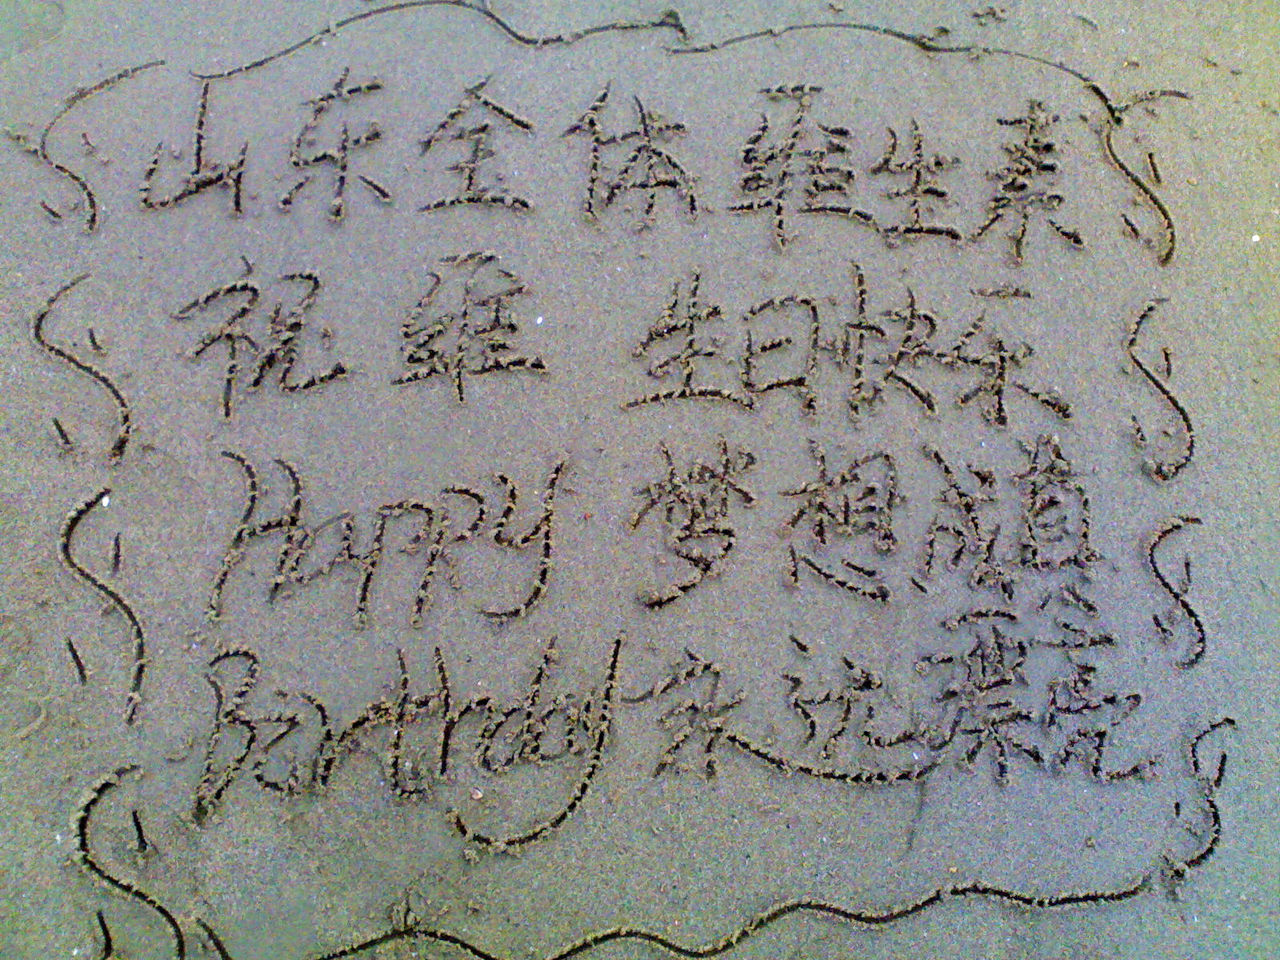 山东全体维生素
祝维 生日快乐
Happy 梦想成真
Birthday 永远漂亮